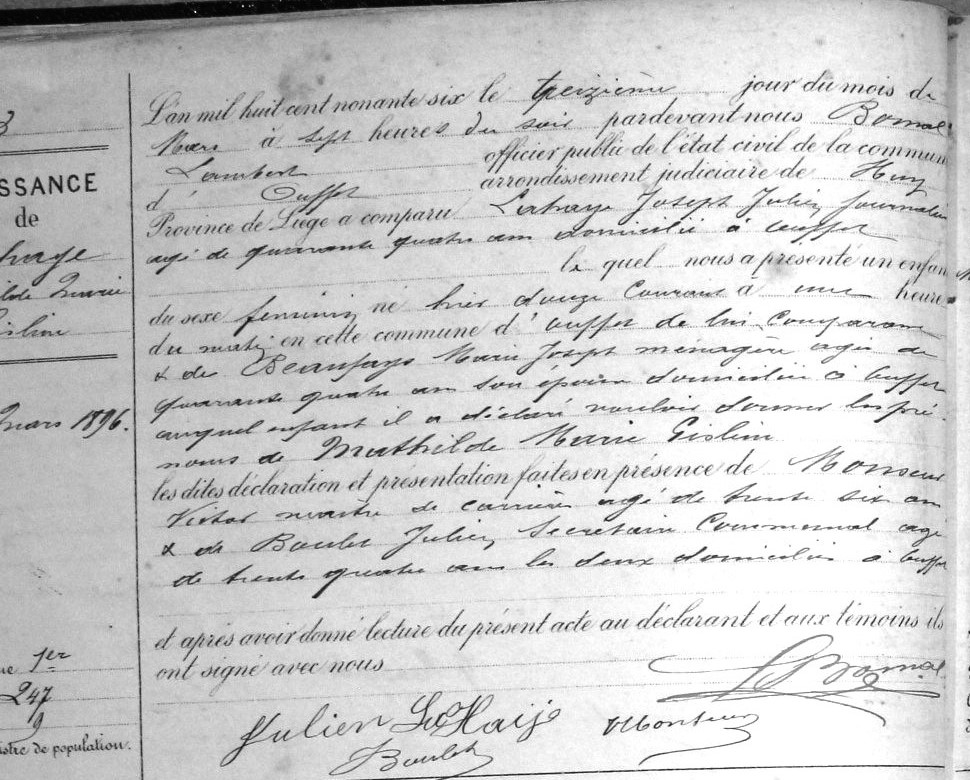 3
SSANCE
de
haye
lde Marie
islin
mars 1896.
1er
247
9
stre de population.
L'an mil huit cent nonante six le treizième jour du mois de
Mars à sept heures du soir pardevant nous Bomal
Lambert officier public de l'état civil de la commun
d' Ouffet arrondissement judiciaire de Huy
Province de Liège a comparu Lahaye Joseph Julien journalier
agé de quarante quatre ans domicilié à Ouffet
le quel nous a présenté un enfan
du sexe féminin né hier douze courant à une heure
du matin en cette commune d'Ouffet de lui Comparant
& de Beaufays Marie Joseph ménagère agée de
quarante quatre ans son épouse domiciliée à Ouffet
auquel enfant il a déclaré vouloir donner les pré
noms de Mathilde Marie Gislin
les dites déclaration et présentation faites en présence de Monseur
Victor maître de carrière agé de trente six ans
& de Boulet Julien Secrétaire Communal agé
de trente quatre ans les deux domiciliés à Ouffet
et après avoir donné lecture du présent acte au déclarant et aux témoins ils
ont signé avec nous
L Bomal
Julien LaHaije VMonseur
Boulet